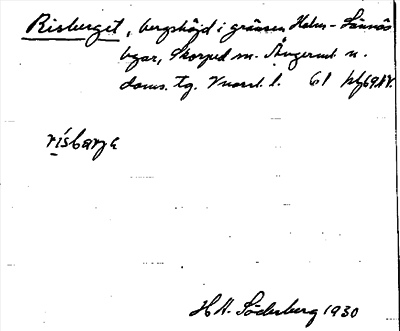 Risberget, bergshöjd i gränsen Holm - Sännäs
byar, Skorped sn. Ångerml. n.
doms. tg. Vnorrl. l. 61
rísbarja
H A. Söderberg 1930